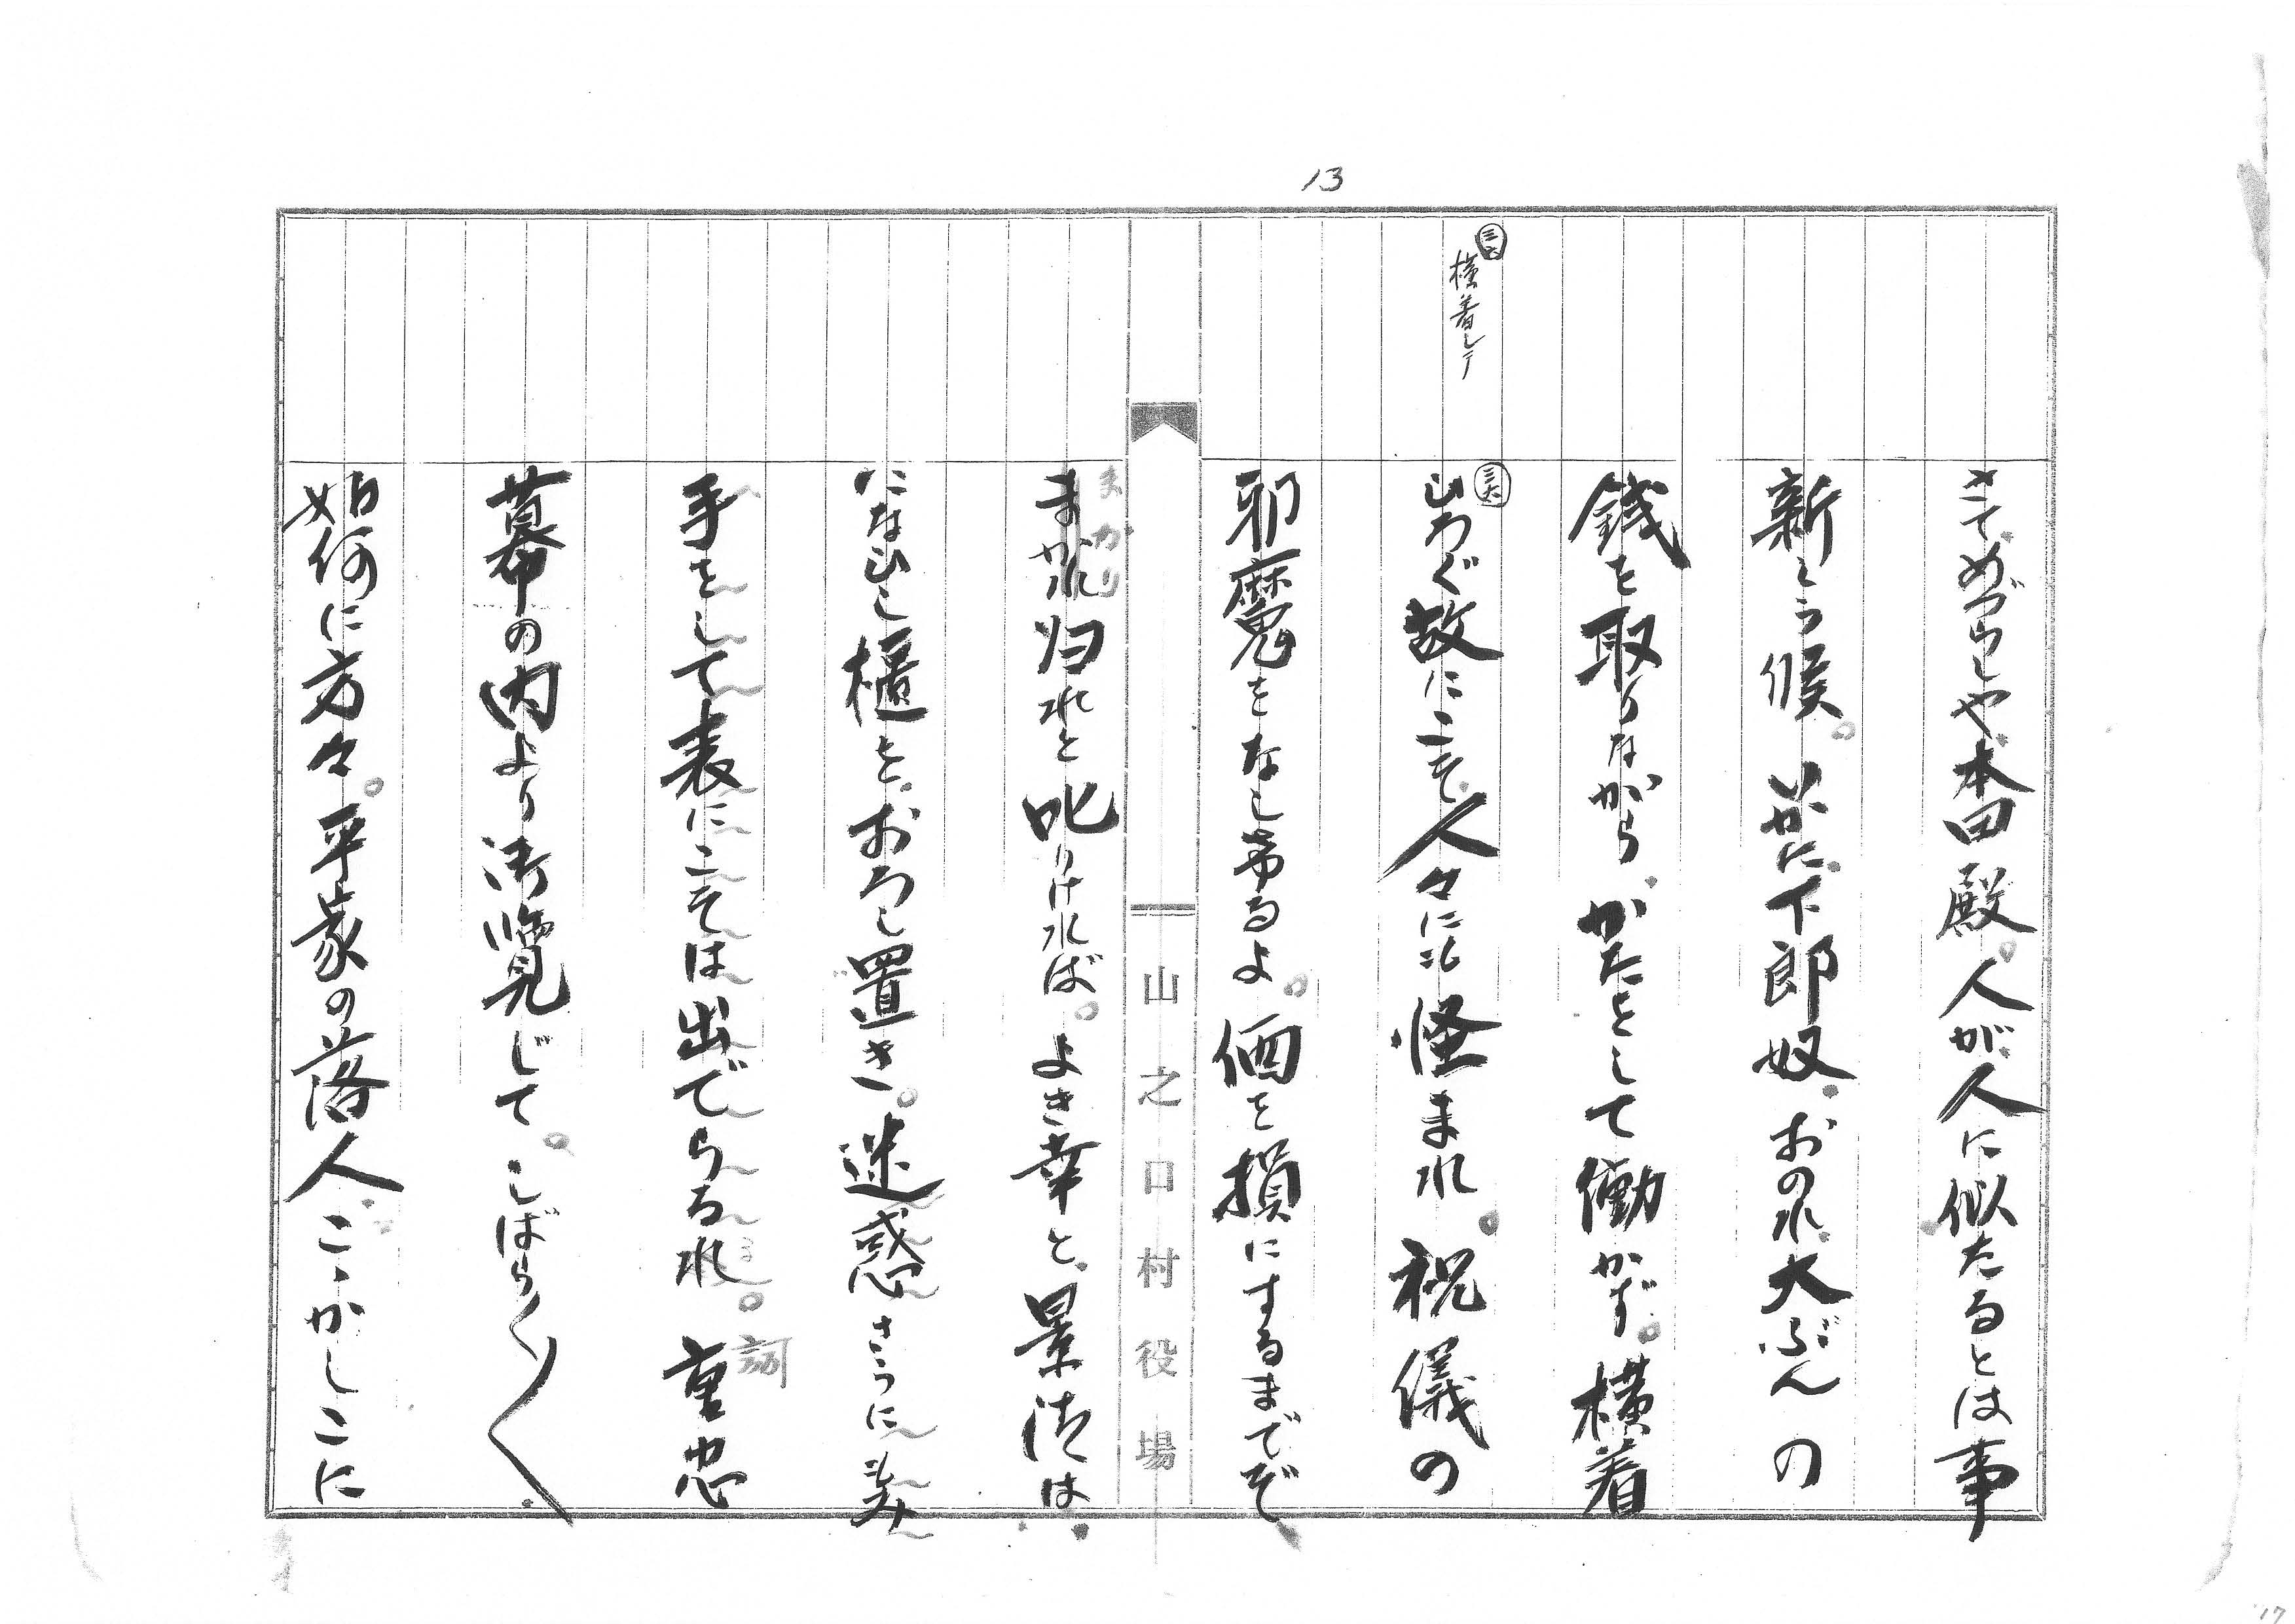 13
さてめづらしや本田殿。人が人に似たるとは事
新しう候。いかに下郎奴。おのれ大ぶんの
銭を取りながら、かたとして働かず。横着
㊱
横着して
㊱
ひろぐ故にこそ人々にも怪まれ。祝儀の
邪魔をなし帯るよ。価を損にするまでぞ
山之口村役場
まかり
まかれ归れと叱りければ。よき幸と景清は
になひし櫃をおろし置き。迷惑さうに
手をして表にこそは出でらるれ。重忠
詞
幕の内より御覧じて。しばらく〱
如何に方々。平家の落人こゝかしこに
17